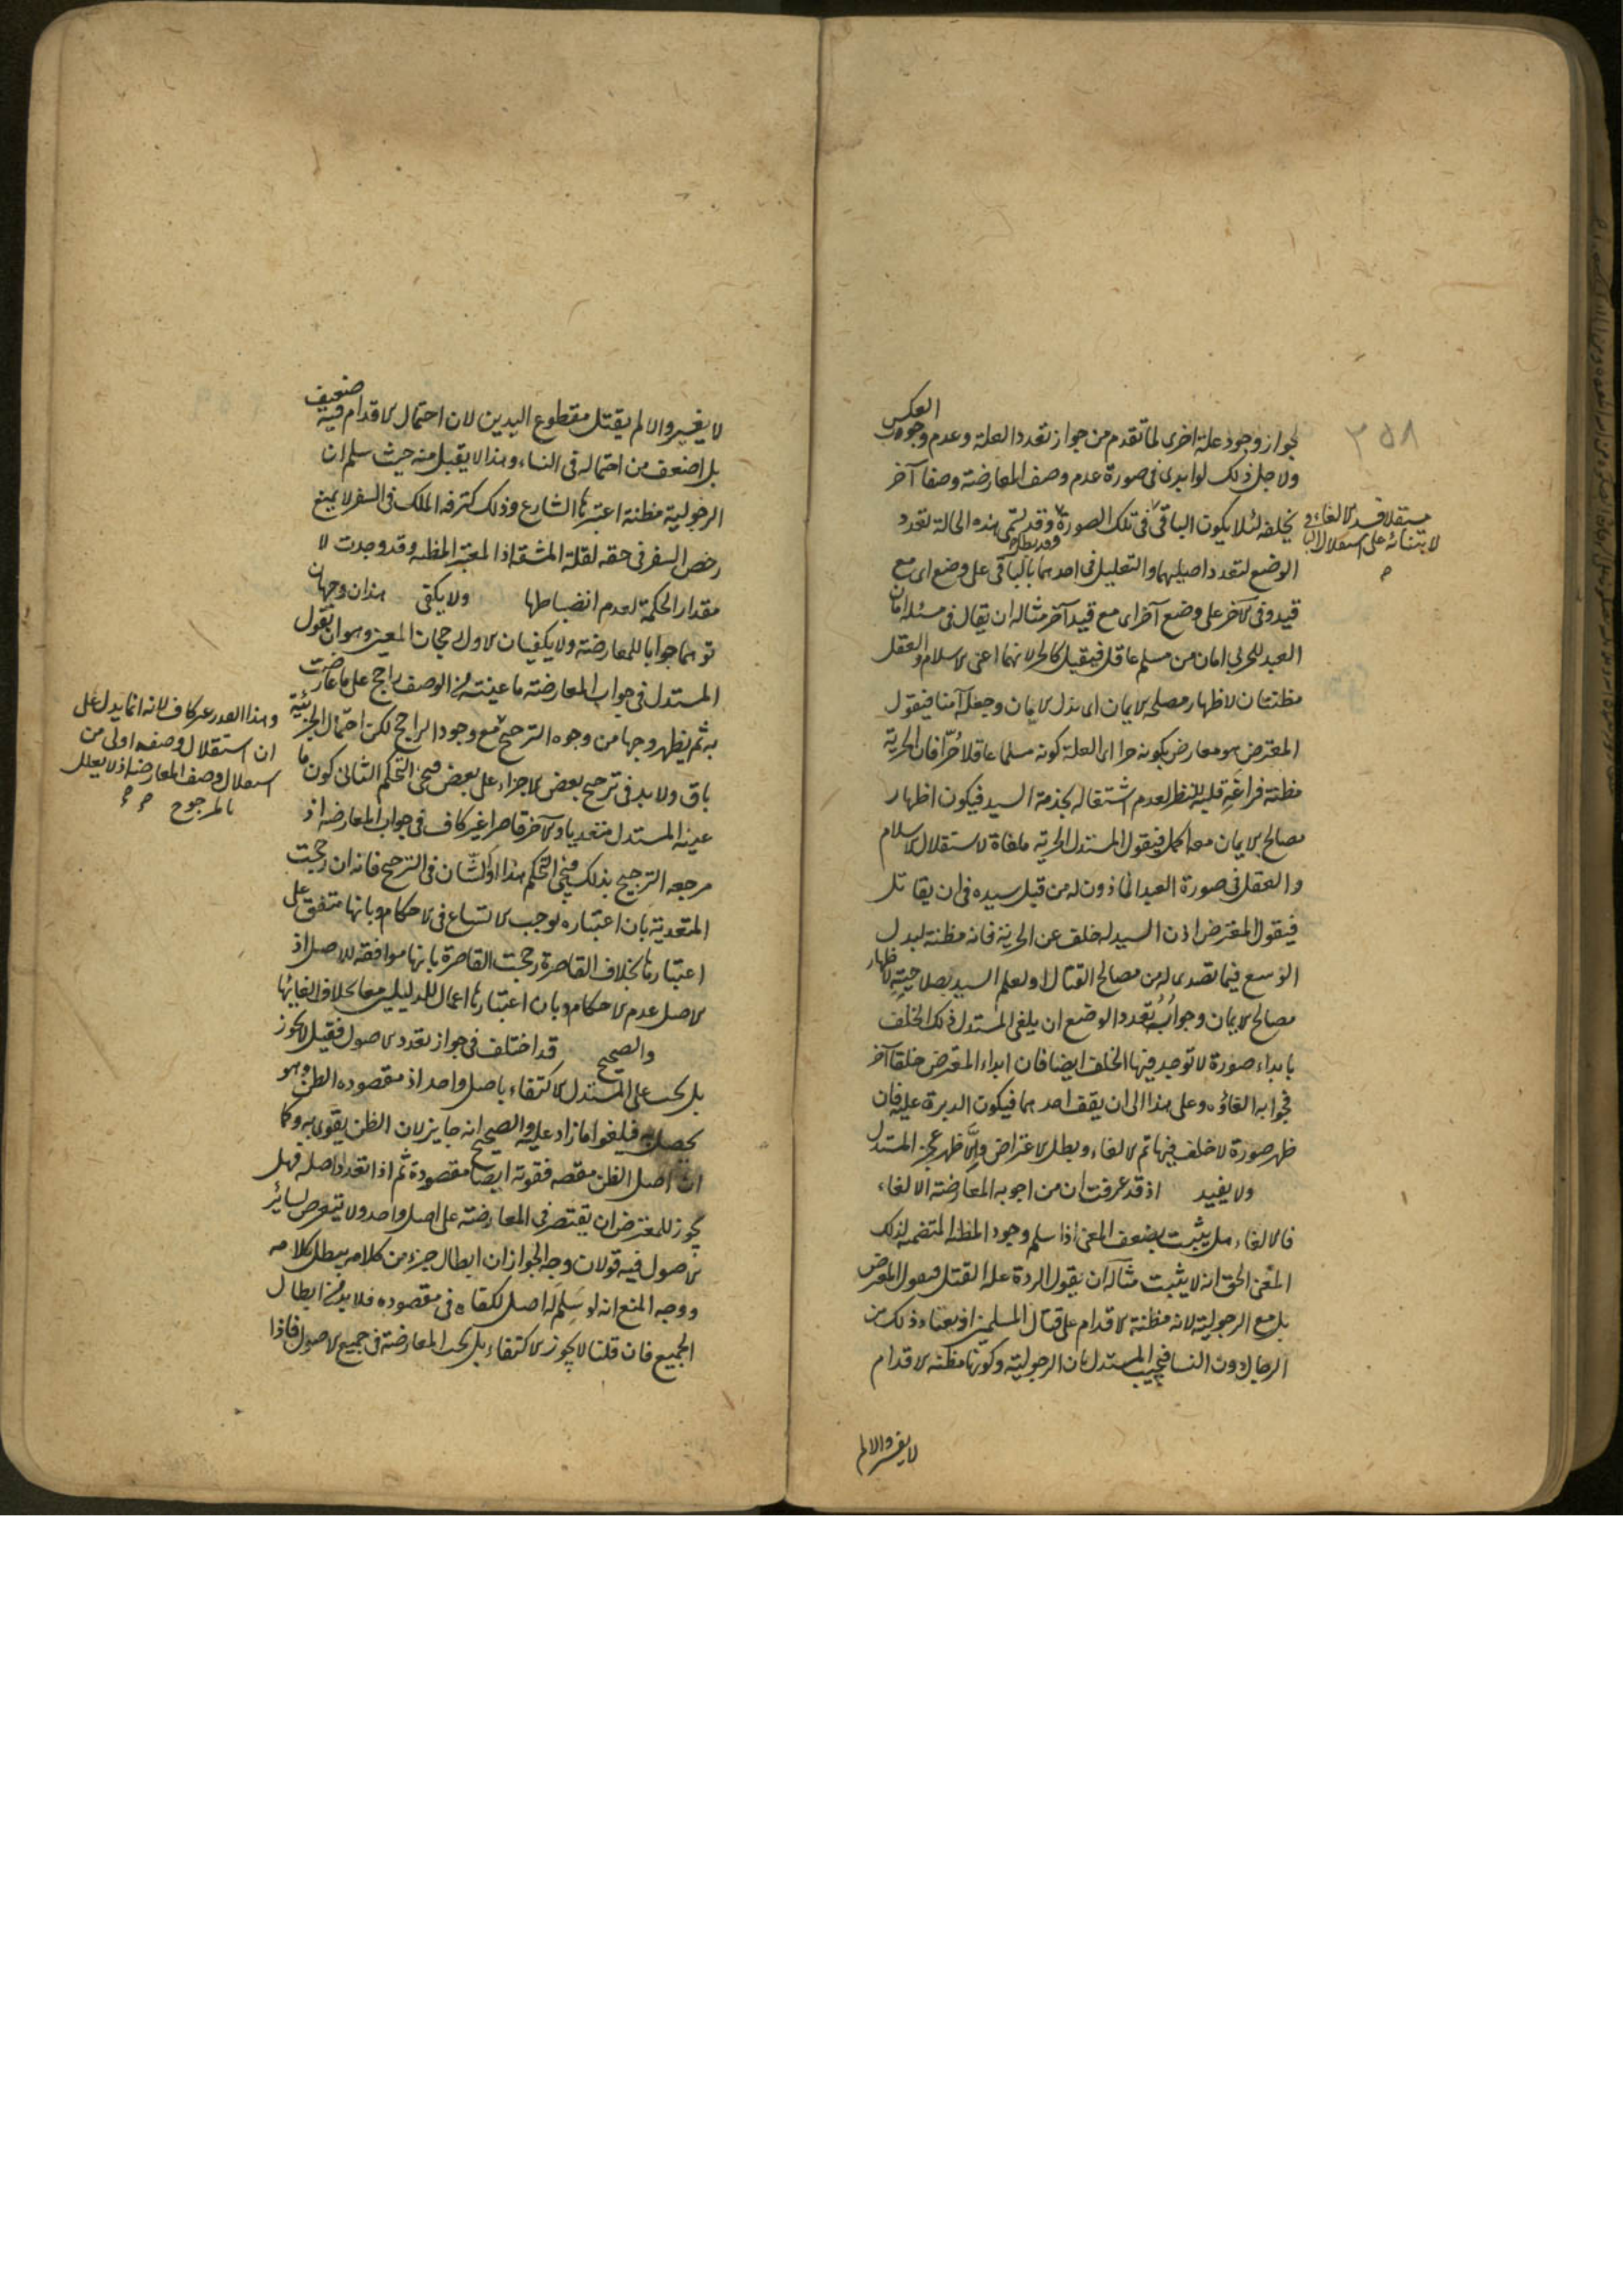 ٣٥٨
العكس
لجواز وجود علة اخرى لما تقدم من جواز تعدد العلة وعدم وجوب
ولاجل ذلك لو ابدى فى صورة عدم وصف المعارضة وصفا آخر
يخلفه لئلا يكون الباقى فى تلك الصورة وقد تسمى هذه الحالة تعدد
مستقلا فسد الالغاء
لابتنائه على استقلال
الوضع لتعدد اصليهما والتعليل فى احدهما بالباقى على وضع اى مع
قيد وفى الآخر على وضع آخر اى مع قيد آخر مثاله ان يقال فى مسئلة امان
العبد للحربى امان من مسلم عاقل فيقبل كالحر لانهما اعنى الاسلام والعقل
مظنتان لاظهار مصلحة الايمان اى بذل الايمان وجعله آمنا فيقول
المعترض هو معارض بكونه حرا اى العلة كونه مسلما عاقلا حُرّا فان الحرية
مظنة فراغه قلبه للنظر لعدم اشتغاله بخدمة السيد فيكون اظهار
مصالح الايمان معه اكمل فيقول المستدل الحرية ملغاة لاستقلال الاسلام
والعقل فى صورة العبد الماذون له من قبل سيده فى ان يقاتل
فيقول المعترض اذن السيد له خلف عن الحرية فانه مظنة لبذل
الوسع فيما تصدى له من مصالح القتال او لعلم السيد بصلاحيته لاظهار
مصالح الايمان وجوابُ تعدد الوضع ان يلغى المستدل ذلك الخلف
بابداء صورة لا توجد فيها الخلف ايضا فان ابداء المعترض خلفا آخر
فجوابه الغاؤه وعلى هذا الى ان يقف احدهما فيكون الدبرة عليه فان
ظهر صورة لا خلف فيها تم الالغاء وبطل الاعتراض والّا ظهر عجز المستدل
ولا يفيد اذ قد عرفت ان من اجوبة المعارضة الالغاء
فالالغاء هل يثبت بضعف المعنى اذا سلم وجود المظنة المتضمنة لذلك
المعنى الحق انه لا يثبت مثاله ان يقول الردة علة القتل فيقول المعترض
بل مع الرجولية لانه مظنة الاقدام على قتال المسلمين اذ يعتاد ذلك من
الرجال دون النسا فيجيب المستدل بان الرجولية وكونها مظنة الاقدام
لا يغير والا لم
لا يغير والا لم يقتل مقطوع اليدين لان احتمال الاقدام فيه ضعيف
بل اضعف من احتماله فى النساء وهذا لا يقبل منه حيث سلم ان
الرجولية مظنة اعتبرها الشارع وذلك كترفه الملك فى السفر لا يمنع
رخص السفر فى حقه لقلة المشقة اذ المعتبر المظنة وقد وجدت لا
مقدار الحكمة لعدم انضباطها ولا يكفى هذان وجهان
توهما جوابا للمعارضة ولا يكفيان الاول رجحان المعين وهو ان يقول
المستدل فى جواب المعارضة ما عينته من الوصف راجح على ما عارضت
به ثم يظهر وجها من وجوه الترجيح مع وجود الراجح لكن احتمال الجزئية
باق ولا بد فى ترجيح بعض الاجزاء على بعض فيجئ التحكم الثانى كون ما
عينه المستدل متعديا والآخر قاصرا غير كاف فى جواب المعارضة اذ
مرجعه الترجيح بذلك فيجئ التحكم هذا والشان فى الترجيح فانه ان رجحت
المتعدية بان اعتباره يوجب الاتساع فى الاحكام وبانها متفق على
اعتبارها بخلاف القاصرة رجحت القاصرة بانها موافقة للاصل اذ
الاصل عدم الاحكام وبان اعتبارها اعمال للدليلين معا بخلاف الغائها
والصحيح قد اختلف فى جواز تعدد الاصول فقيل لا يجوز
بل يجب على المستدل الاكتفاء باصل واحد اذ مقصوده الظن وهو
يحصل به فيلغوا ما زاد عليه والصحيح انه جايز لان الظن يقوى به وكما
ان اصل الظن مقصد فقوته ايضا مقصودة ثم اذا تعدد اصله فهل
يجوز للمعترض ان يقتصر فى المعارضة على اصل واحد ولا يتعرض لسائر
الاصول فيه قولان وجه الجواز ان ابطال جزء من كلامه يبطل كلامه
ووجه المنع انه لو سلم له اصل لكفاه فى مقصوده فلا بد من ابطال
الجميع فان قلنا لا يجوز الاكتفاء بل يجب المعارضة فى جميع الاصول فاذا
وهذا القدر غير كاف لانه انما يدل على
ان استقلال وصفه اولى من
استقلال وصف المعارضة اذ لا يعلل
بالمرجوح